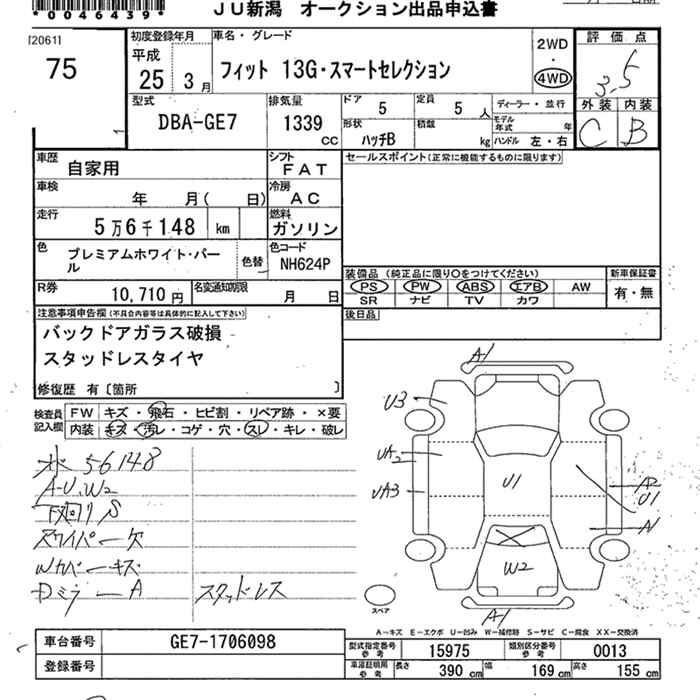 *0046439*
JU新潟 オークション出品申込書
[2061]
75
初度登録年月
平成
25 3月
車名・グレード
フィット 13G・スマートセレクション
2WD
・
4WD
評価点
3.5
外装 内装
C B
型式
DBA-GE7
排気量
1339
cc
ドア 5
定員 5 人
ディーラー・並行
形状
ハッチB
積載
kg
モデル年式 年
ハンドル 左・右
車歴
自家用
シフト
FAT
セールスポイント(正常に機能するものに限ります)
車検
年 月( 日)
冷房
AC
走行
5万6千148 km
燃料
ガソリン
色
プレミアムホワイト・パール
色替
色コード
NH624P
装備品(純正品に限り○をつけてください)
新車保証書
PS PW ABS エアB AW
SR ナビ TV カワ
有・無
R券
10,710円
名変通知期限
月 日
後日品
注意事項申告欄(不具合内容等は具体的に記入して下さい)
バックドアガラス破損
スタッドレスタイヤ
修復歴 有〔箇所 〕
検査員記入欄
FW キズ・飛石・ヒビ割・リペア跡・×要
内装 キズ・汚レ・コゲ・穴・スレ・キレ・破レ
56148
A-U,W2
下廻りS
Rワイパー欠
Wカバーキズ
DミラーA
スタッドレス
A1
U3
UA2
UA3
U1
A2
U1
A1
W2
スペア
A1
A―キズ E―エクボ U―凹み W―補修跡 S―サビ C―腐食 XX―交換済
車台番号
GE7-1706098
登録番号
型式指定番号 参考
15975
類別区分番号 参考
0013
車庫証明用 参考
長さ 390 cm
幅 169 cm
高さ 155 cm